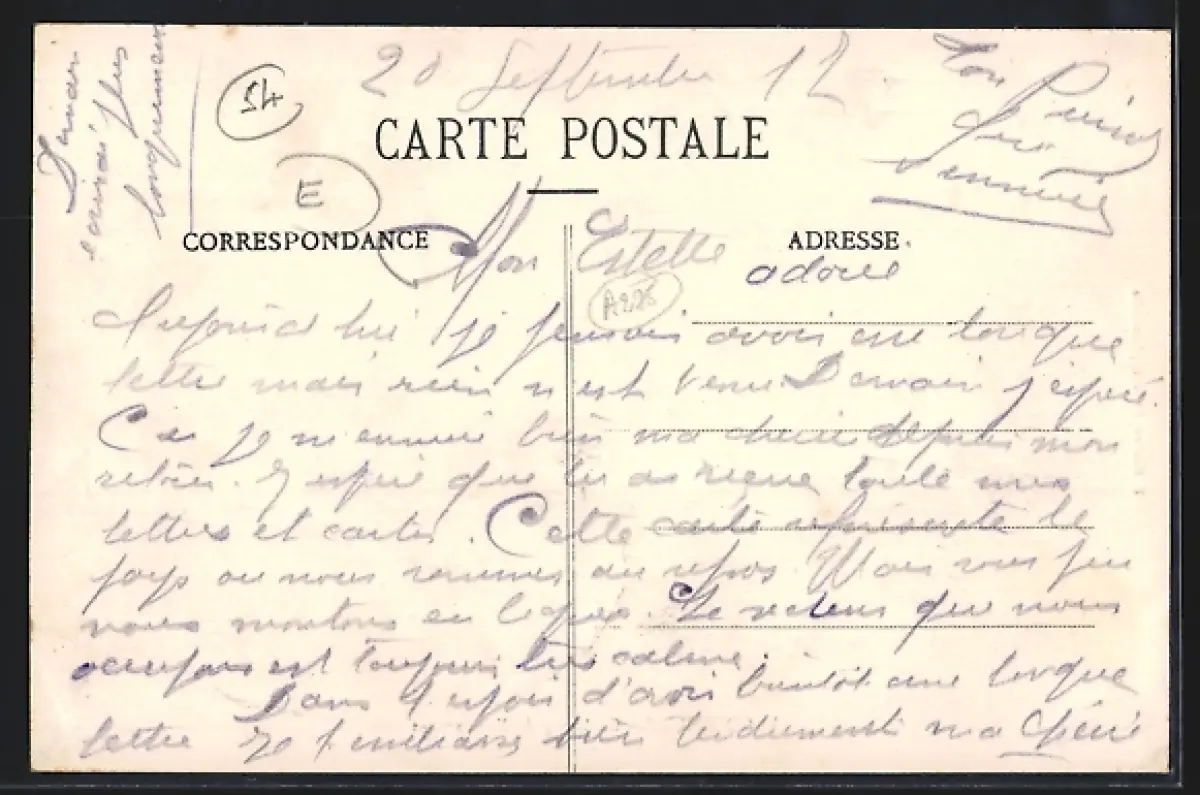 20 Septembre 17
54
CARTE POSTALE
E
CORRESPONDANCE
ADRESSE.
Mon Estelle adorée
A226
Aujourd hui je pensais avoir une longue
lettre mais rien n est venu. Demain j'espère.
Car je m ennuie bien ma cherie depuis mon
retour. J espère que tu as reçue toute mes
lettres et cartes. Cette carte represente le
pays ou nous sommes au repos. Mais sous peu
nous montons en lignes. Le secteur que nous
occupons est toujours très calme.
Dans l espoir d'avoir bientôt une longue
lettre Je t embrasse bien tendrement ma Chérie
Ton
qui
Demain
j'ecrirai plus
longuement